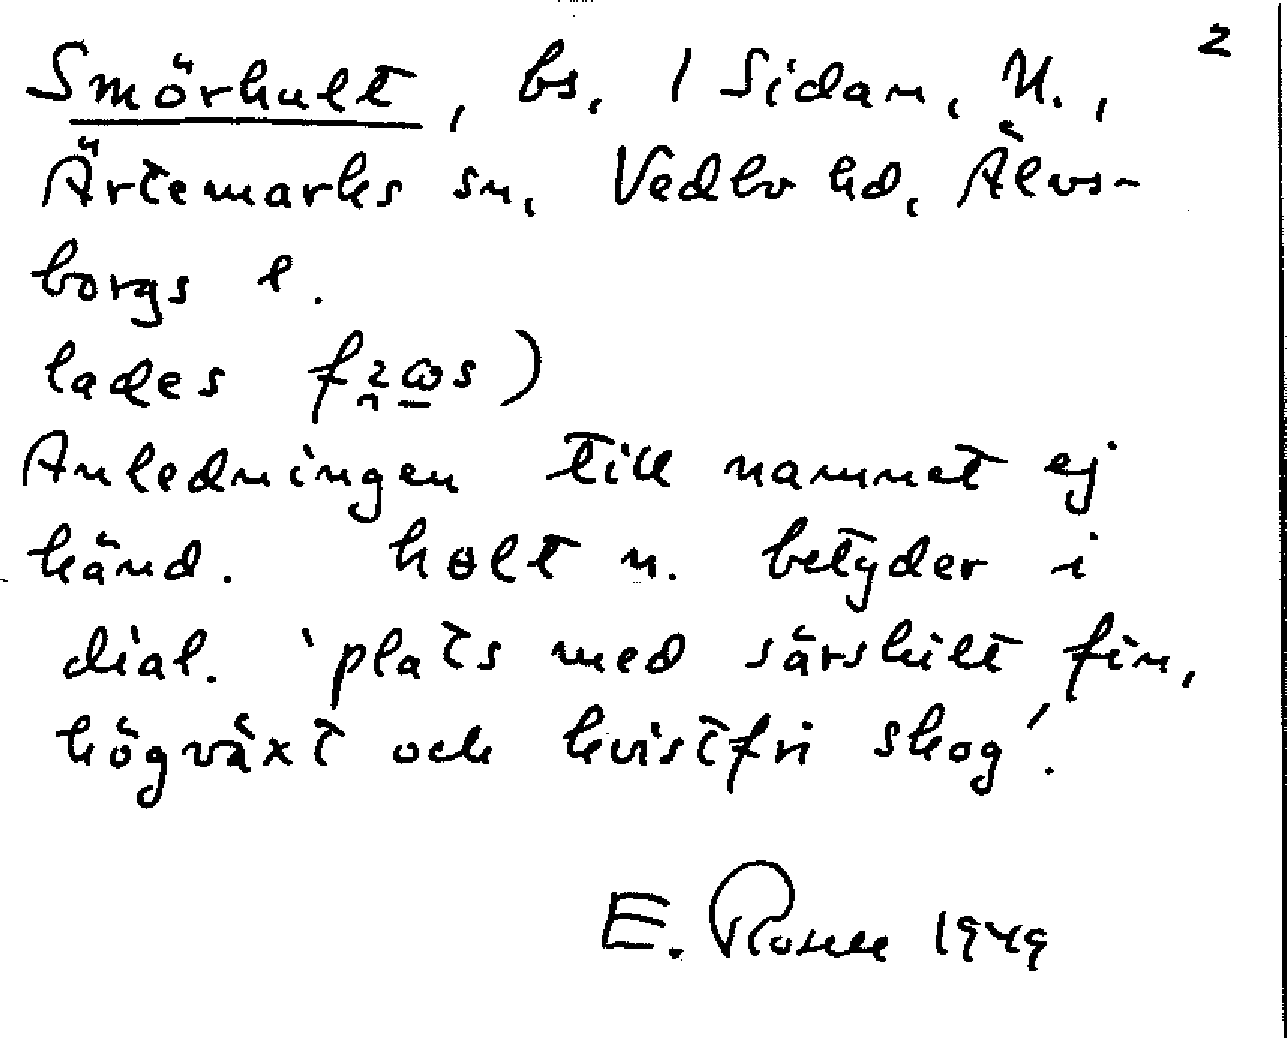 2
Smörhult, bs. 1 Sidan, N.,
Ärtemarks sn, Vedbo hd, Älvs-
borgs l.
lades
Anledningen till namnet ej
känd. hɵlt n. betyder i
dial. 'plats med särskilt fin,
högväxt och kvistfri skog'.
E. Rosell 1949